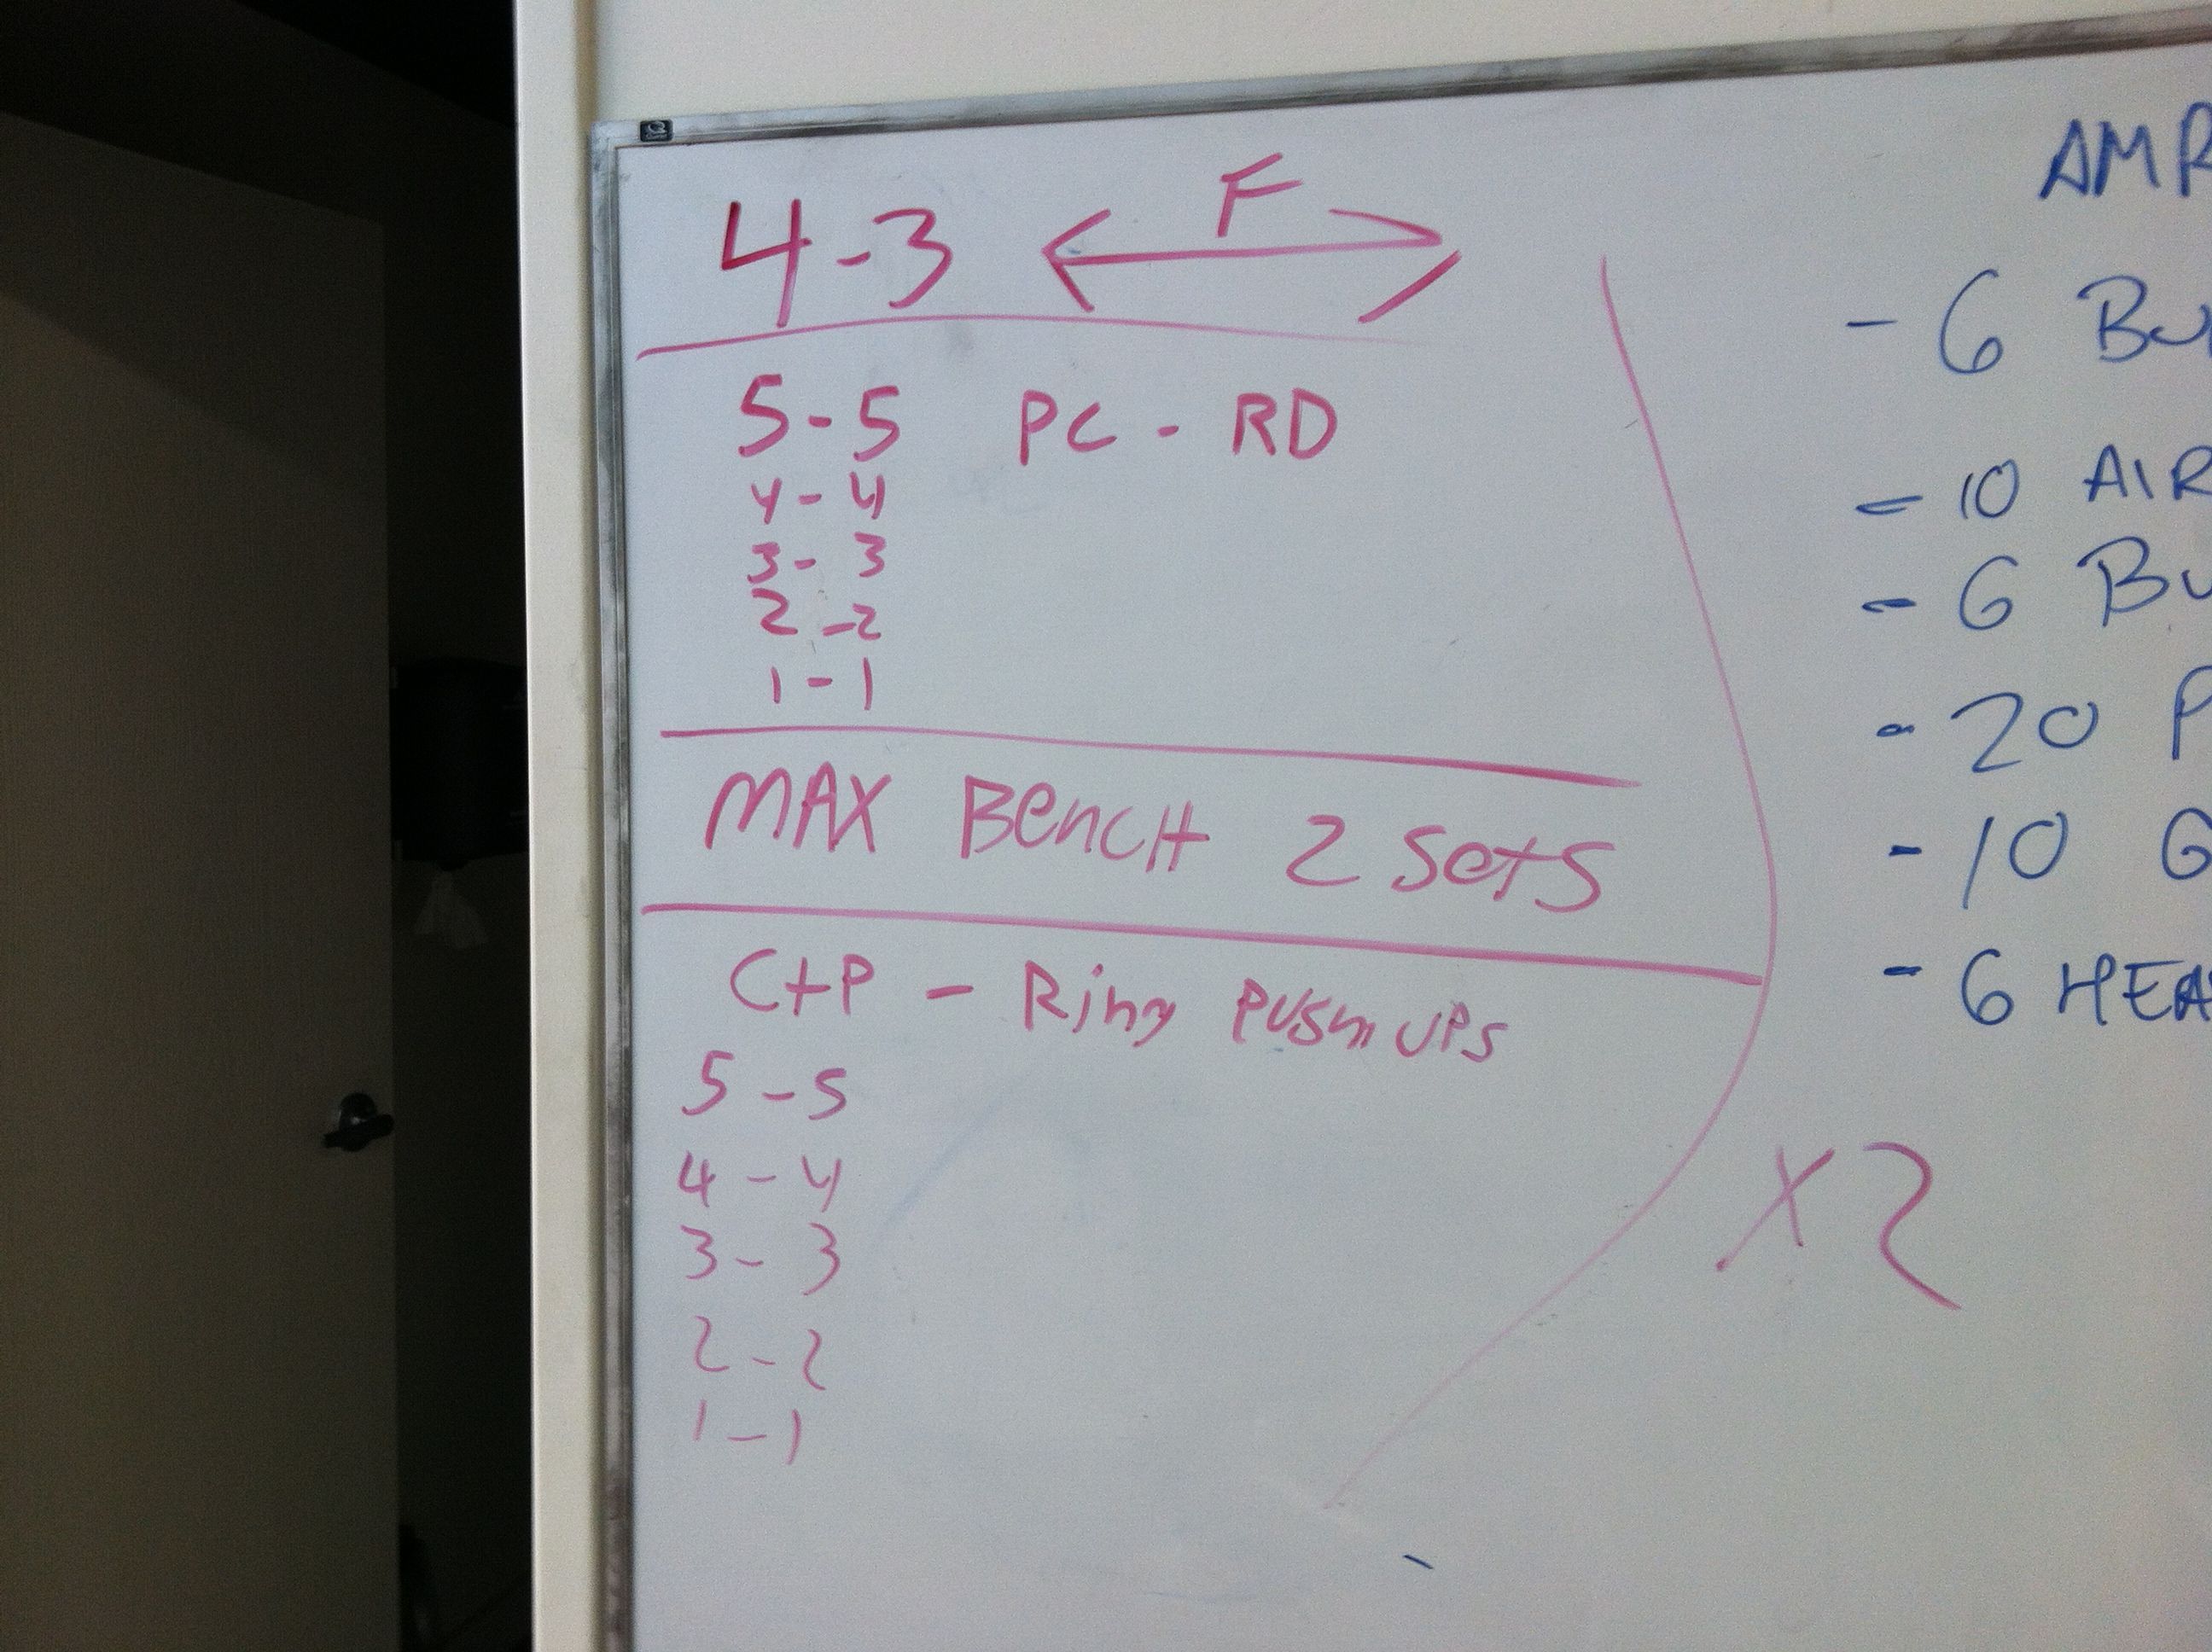 4-3 F
5-5 PC - RD
4-4
3-3
2-2
1-1
MAX BencH 2 Sets
C+P - Ring PUSH UPS
5-5
4-4
3-3
2-2
1-1
AMR
- 6 BU
- 10 AIR
- 6 BU
- 20 P
- 10 G
- 6 HEA
X2